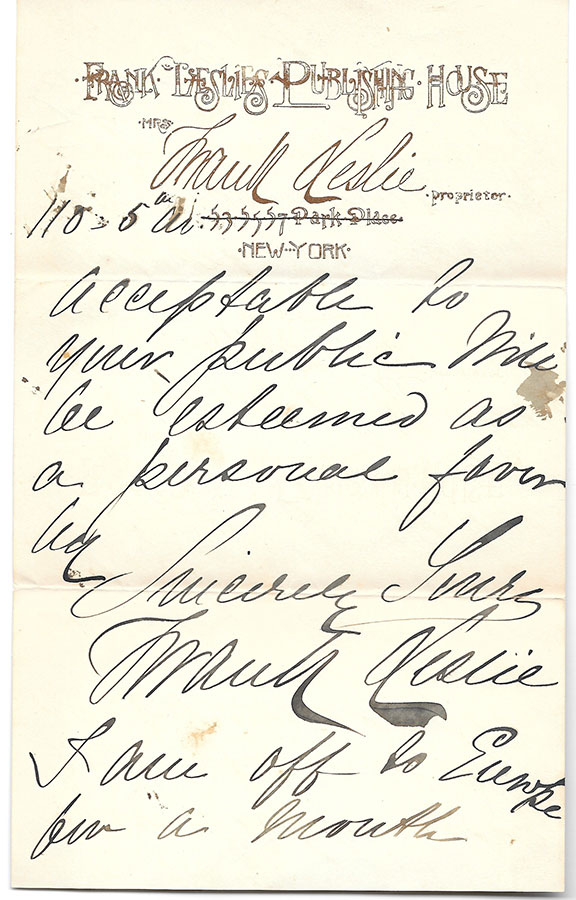 FRANK LESLIE'S PUBLISHING HOUSE
MRS
Frank Leslie
proprietor.
110 5th Av. 53-55-57 Park Place
NEW-YORK
acceptable to
your public Will
be esteemed as
a personal favor
by
Sincerely Yours
Frank Leslie
I am off to Europe
for a month